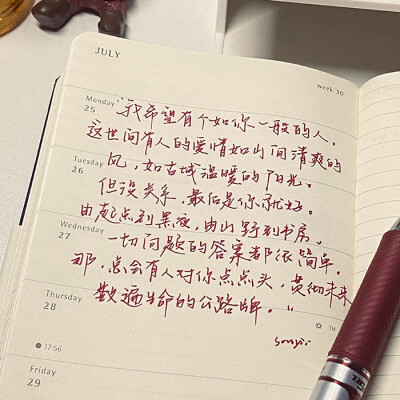 JULY
week 30
Monday
25
"我希望有个如你一般的人.
这世间有人的爱情如山间清爽的
Tuesday
26
风，如古城温暖的阳光。
但没关系，最后是你就好。
Wednesday
27
由起点到黑夜，由山野到书房。
一切问题的答案都很简单。
那，总会有人对你点点头，贯彻未来
Thursday
28
数遍生命的公路牌。"
TH
17:56
Friday
29